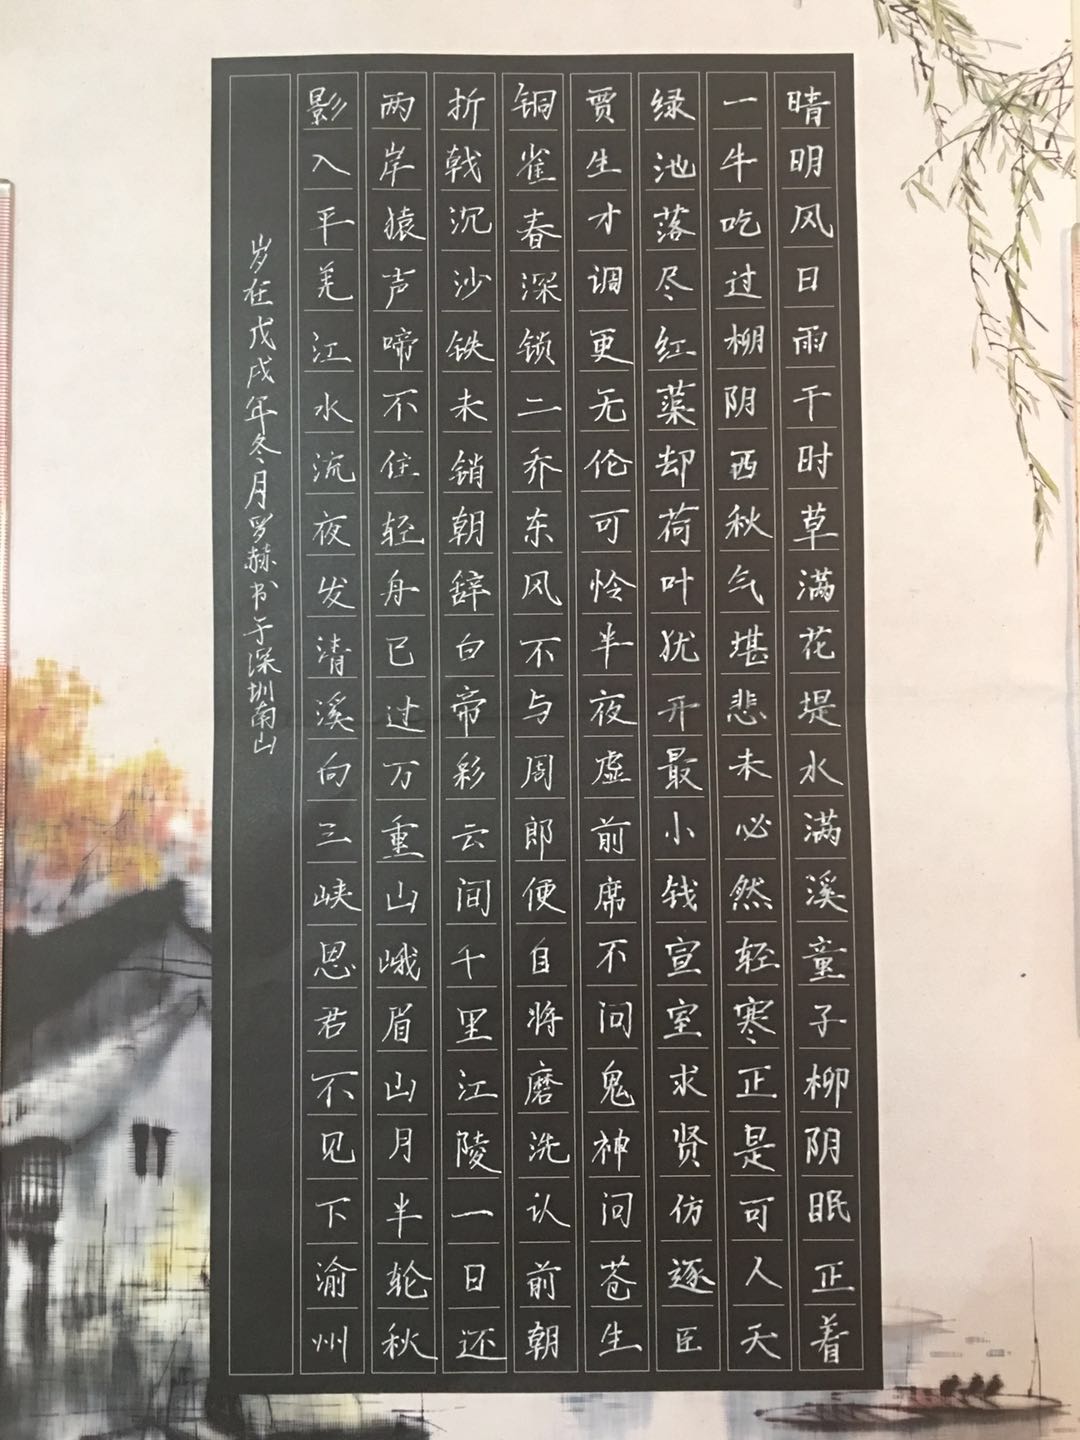 晴明风日雨干时草满花堤水满溪童子柳阴眠正着
一牛吃过柳阴西秋气堪悲未必然轻寒正是可人天
绿池落尽红蕖却荷叶犹开最小钱宣室求贤仿逐臣
贾生才调更无伦可怜半夜虚前席不问鬼神问苍生
铜雀春深锁二乔东风不与周郎便自将磨洗认前朝
折戟沉沙铁未销朝辞白帝彩云间千里江陵一日还
两岸猿声啼不住轻舟已过万重山峨眉山月半轮秋
影入平羌江水流夜发清溪向三峡思君不见下渝州
岁在戊戌年冬月罗赫书于深圳南山